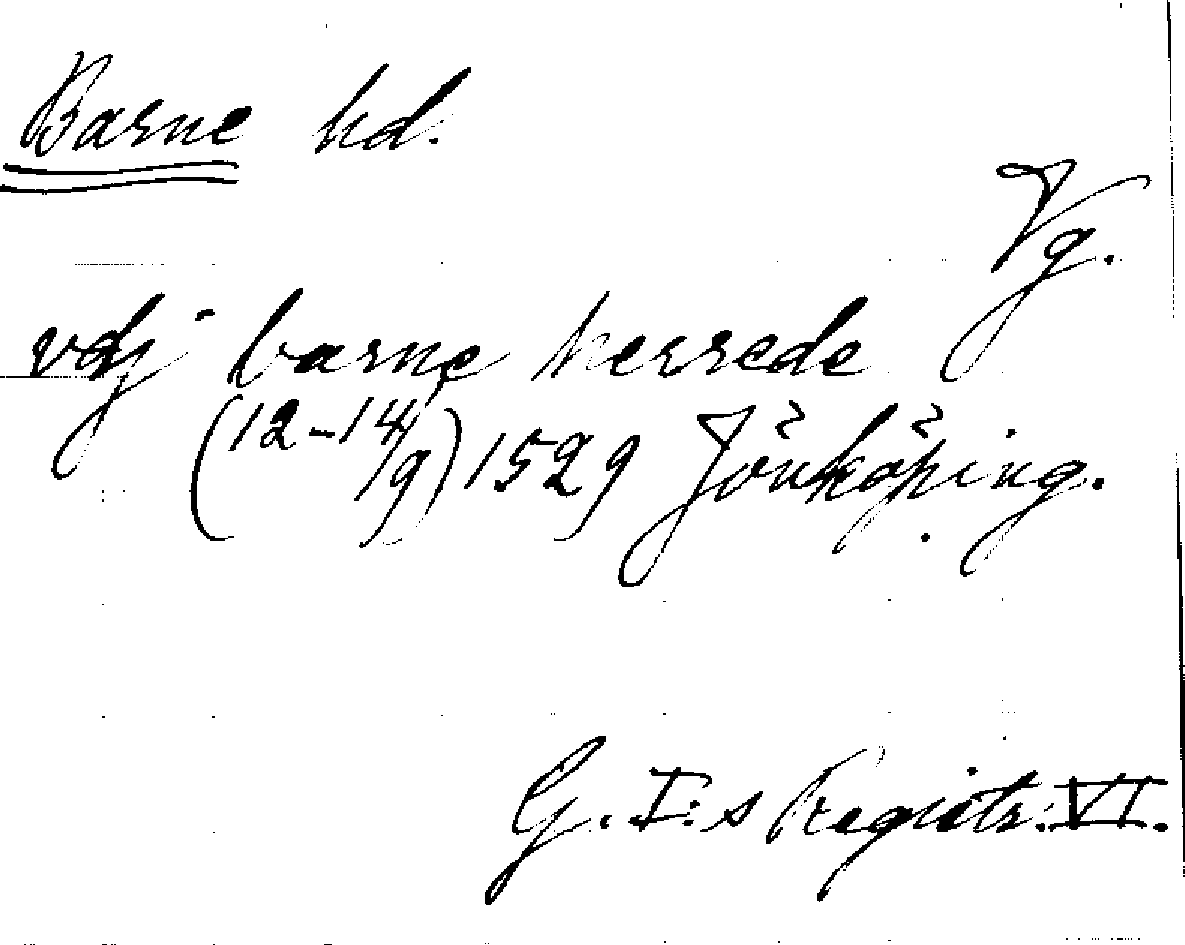 Barne hd.
Vg.
vdj barne herrede
(12-14/9) 1529 Jönköping.
G. I:s Registr. VI.